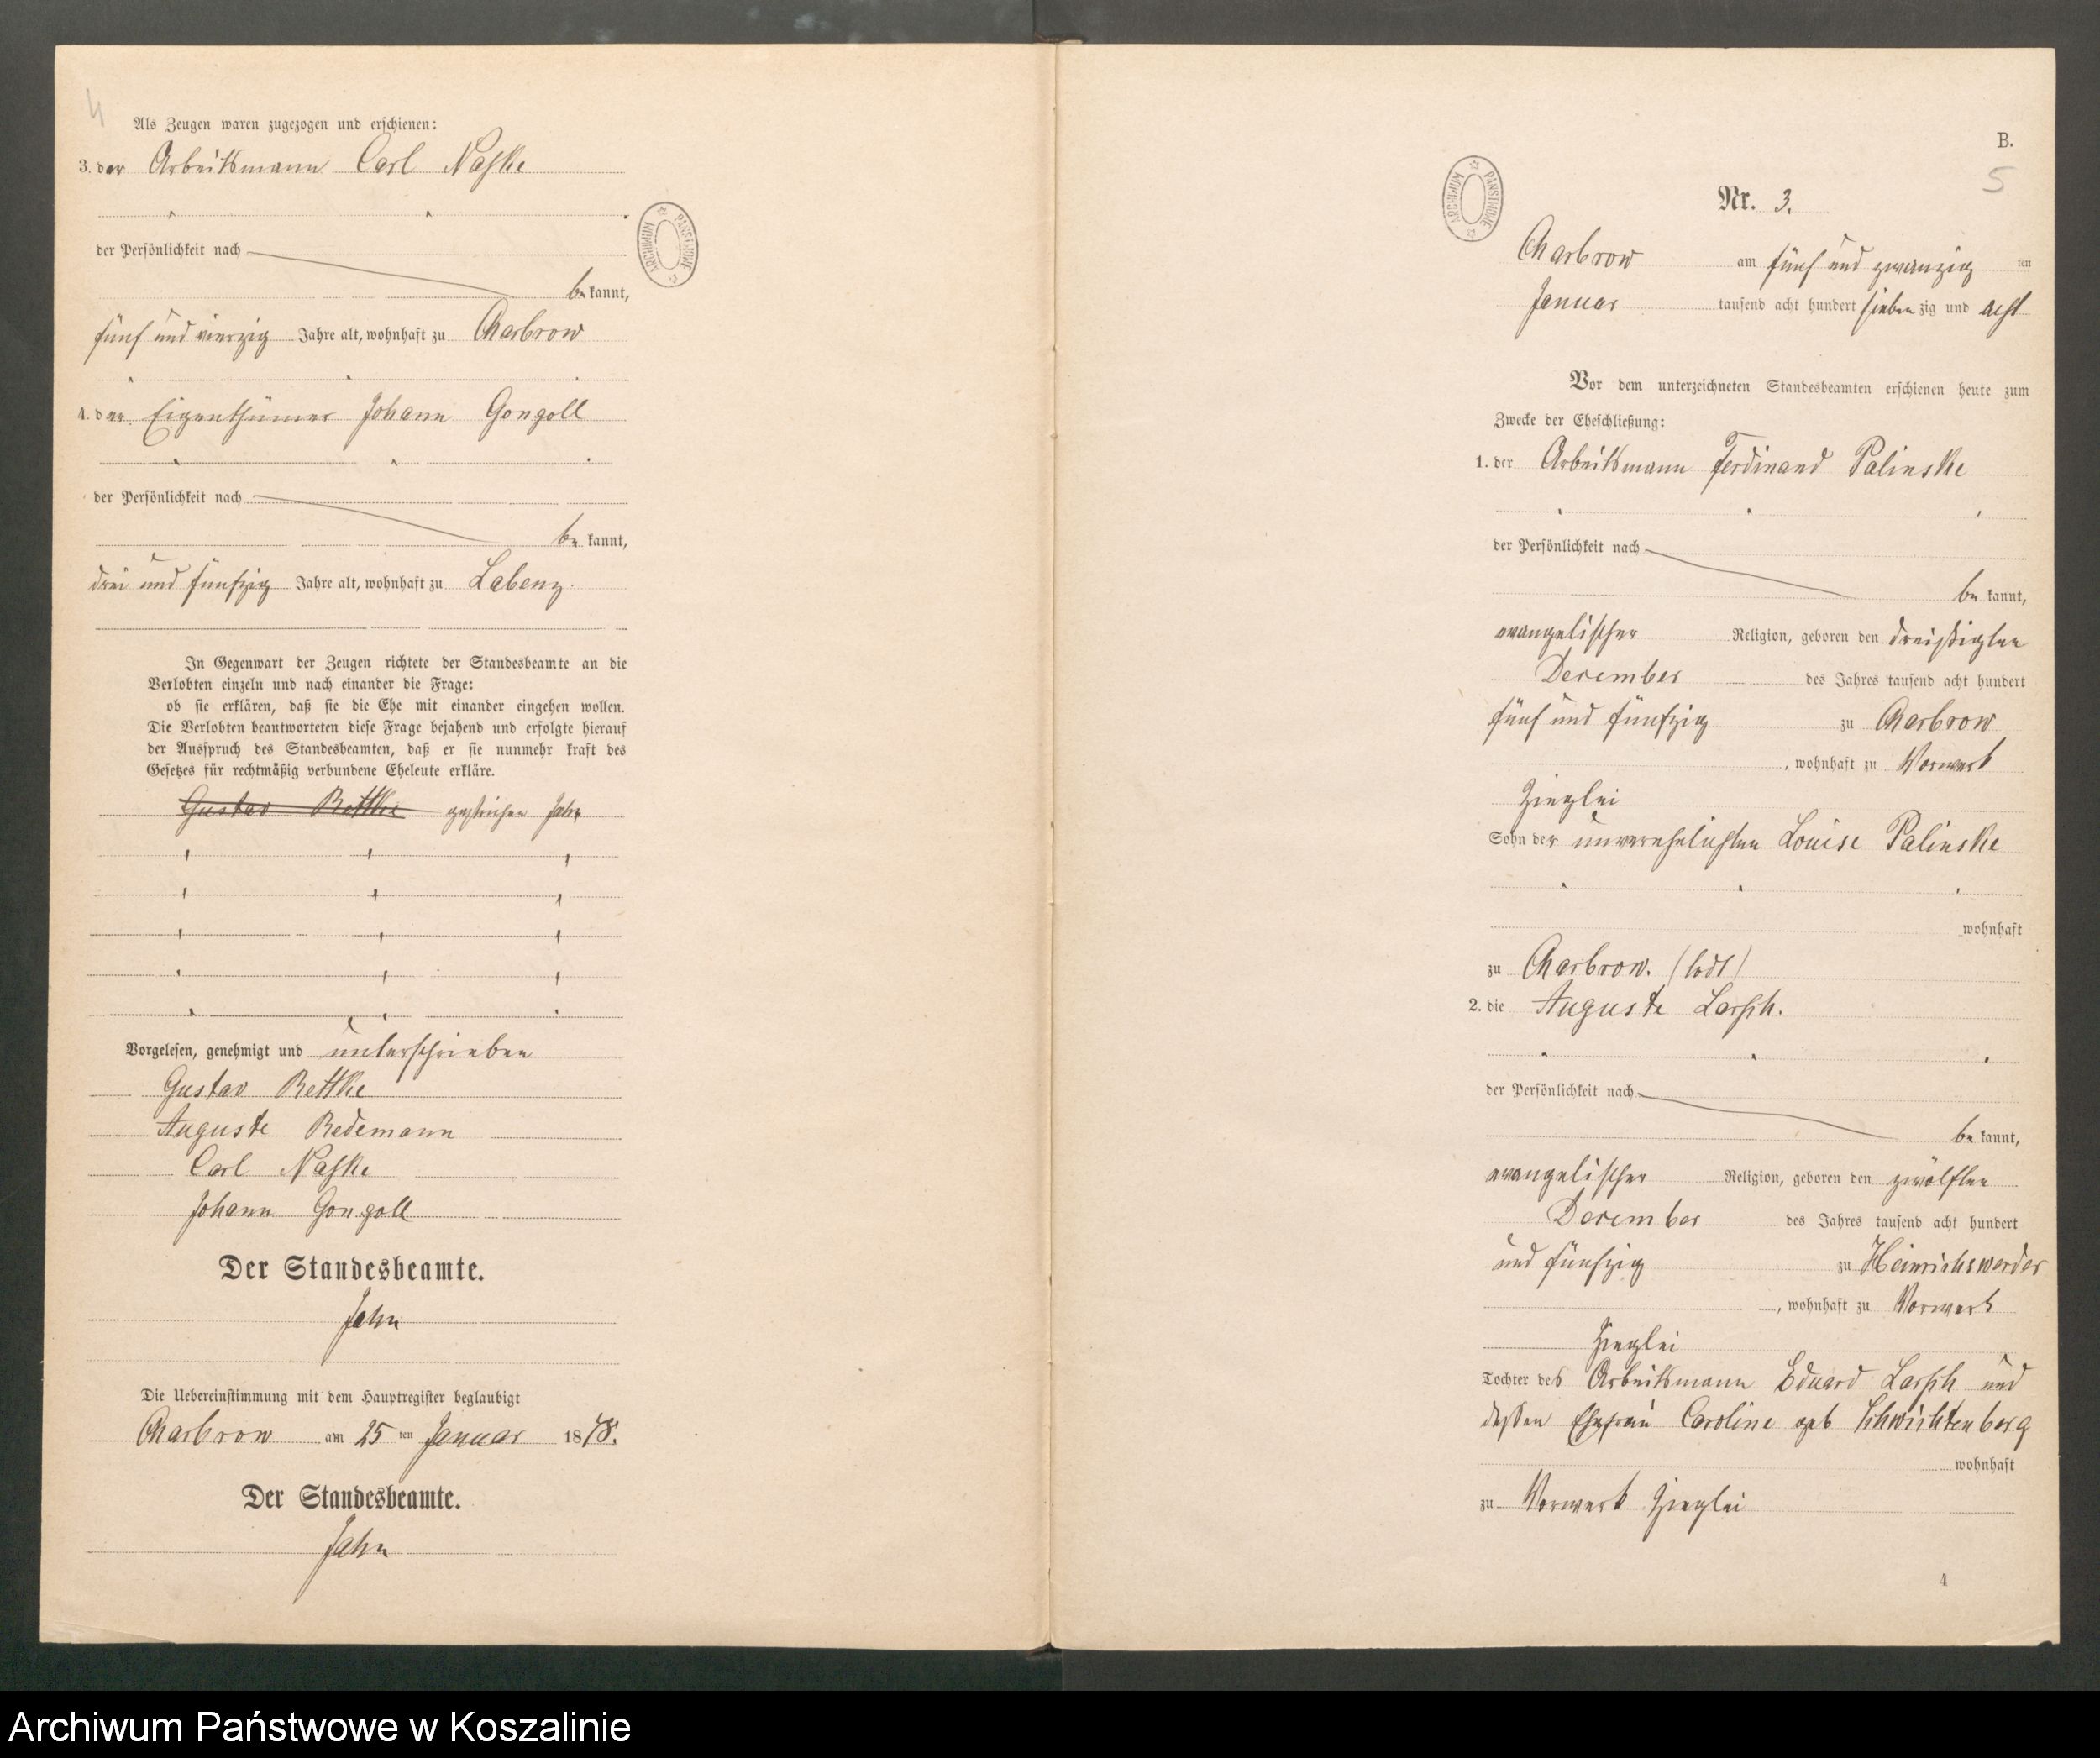 4
Als Zeugen waren zugezogen und erschienen:
3. der Arbeitsmann Carl Naßke
ARCHIWUM PAŃSTWOWE
der Persönlichkeit nach
be kannt,
fünf und vierzig Jahre alt, wohnhaft zu Charbrow
4. der Eigenthümer Johann Gongoll
der Persönlichkeit nach
be kannt,
drei und fünfzig Jahre alt, wohnhaft zu Labenz.
In Gegenwart der Zeugen richtete der Standesbeamte an die
Verlobten einzeln und nach einander die Frage:
ob sie erklären, daß sie die Ehe mit einander eingehen wollen.
Die Verlobten beantworteten diese Frage bejahend und erfolgte hierauf
der Ausspruch des Standesbeamten, daß er sie nunmehr kraft des
Gesetzes für rechtmäßig verbundene Eheleute erkläre.
Gustav Rettke gestrichen Jahn
Vorgelesen, genehmigt und unterschrieben
Gustav Rettke
Auguste Redemann
Carl Naßke
Johann Gongoll
Der Standesbeamte.
Jahn
Die Uebereinstimmung mit dem Hauptregister beglaubigt
Charbrow am 25 ten Januar 1878.
Der Standesbeamte.
Jahn
B.
5
ARCHIWUM PAŃSTWOWE
Nr. 3.
Charbrow am fünf und zwanzig ten
Januar tausend acht hundert sieben zig und acht
Vor dem unterzeichneten Standesbeamten erschienen heute zum
Zwecke der Eheschließung:
1. der Arbeitsmann Ferdinand Palinske
der Persönlichkeit nach
be kannt,
evangelischer Religion, geboren den dreißigten
December des Jahres tausend acht hundert
fünf und fünfzig zu Charbrow
, wohnhaft zu Vorwerk
Zieglei
Sohn der unverehelichten Louise Palinske
wohnhaft
zu Charbrow. (todt)
2. die Auguste
der Persönlichkeit nach
be kannt,
evangelischer Religion, geboren den zwölften
December des Jahres tausend acht hundert
und fünfzig zu Heinrichswerder
, wohnhaft zu Vorwerk
Zieglei
Tochter des Arbeitsmann Eduard und
dessen Ehefrau Caroline geb Schwichtenberg
wohnhaft
zu Vorwerk Zieglei
4
Archiwum Państwowe w Koszalinie